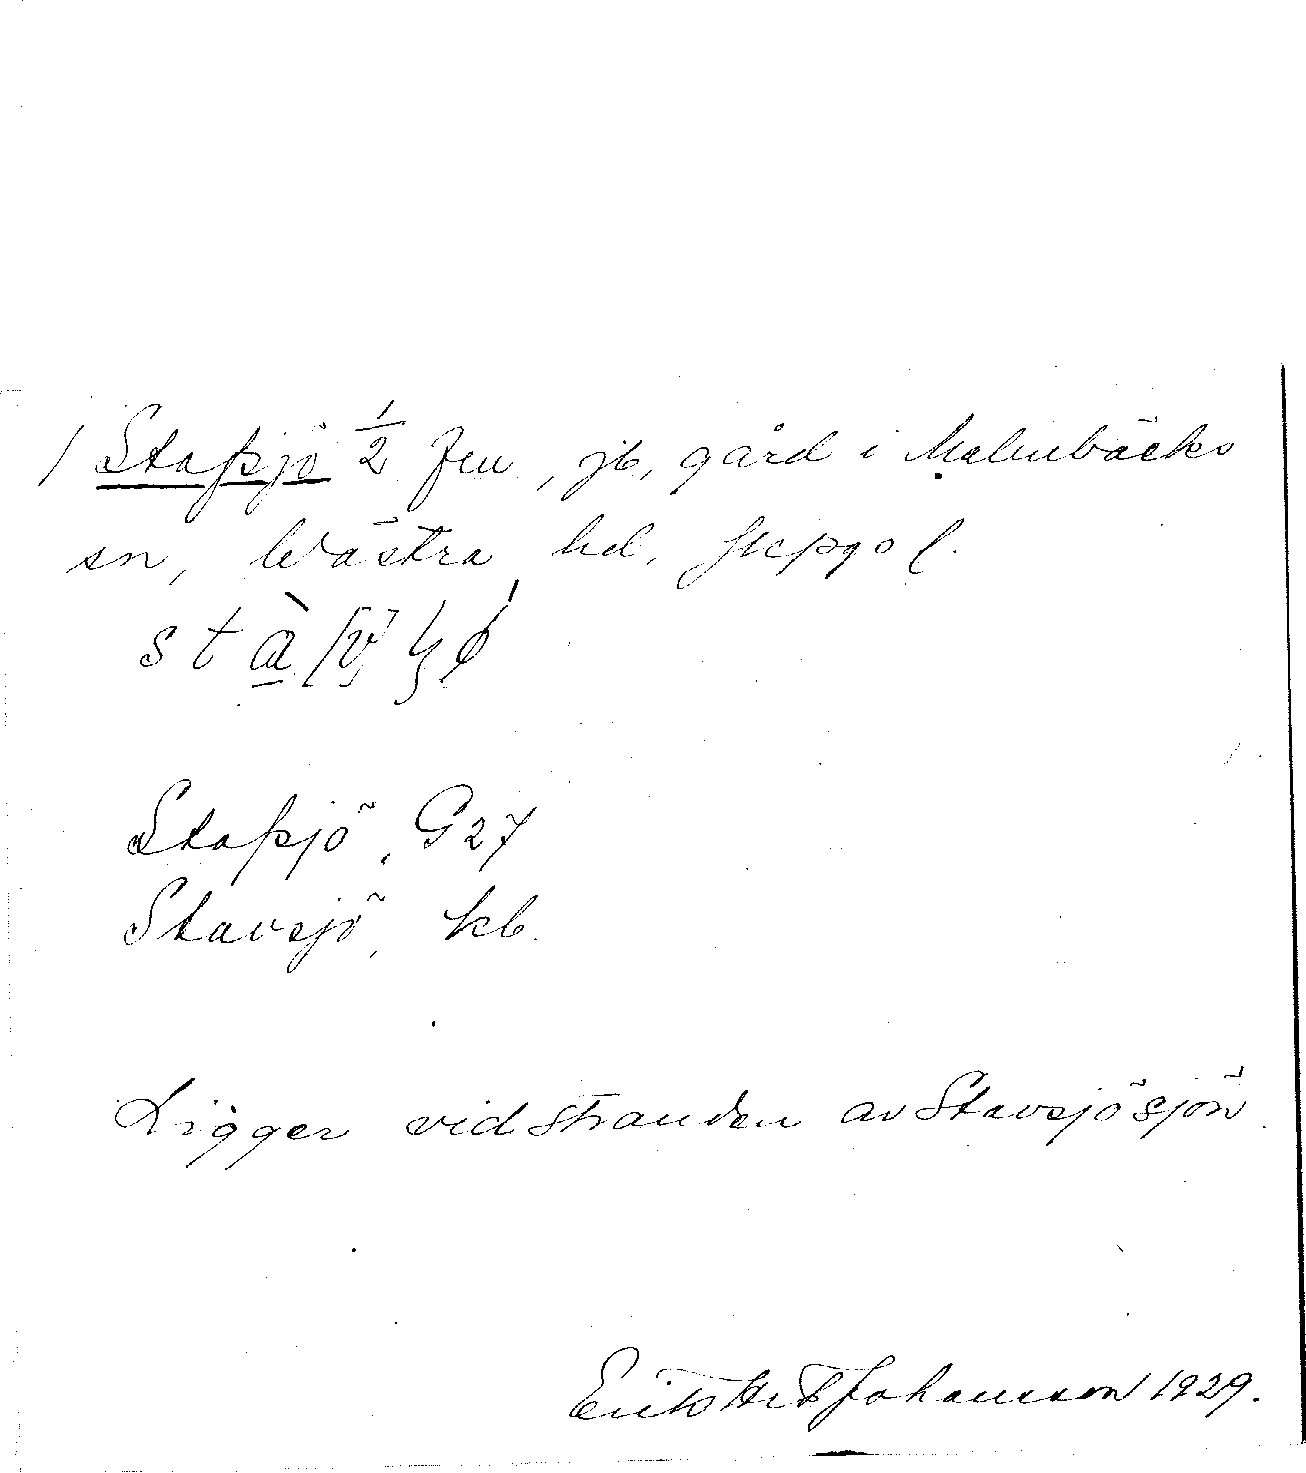 1 Stafsjö 1/2 fru, jb, gård i Malmbäcks
sn, Västra hd, Jkpgs l.
stà[v]ɧø
Stafsjö, G 27
Stavsjö, kb.
Ligger vid stranden av Stavsjösjön.
Erik Johansson 1929.